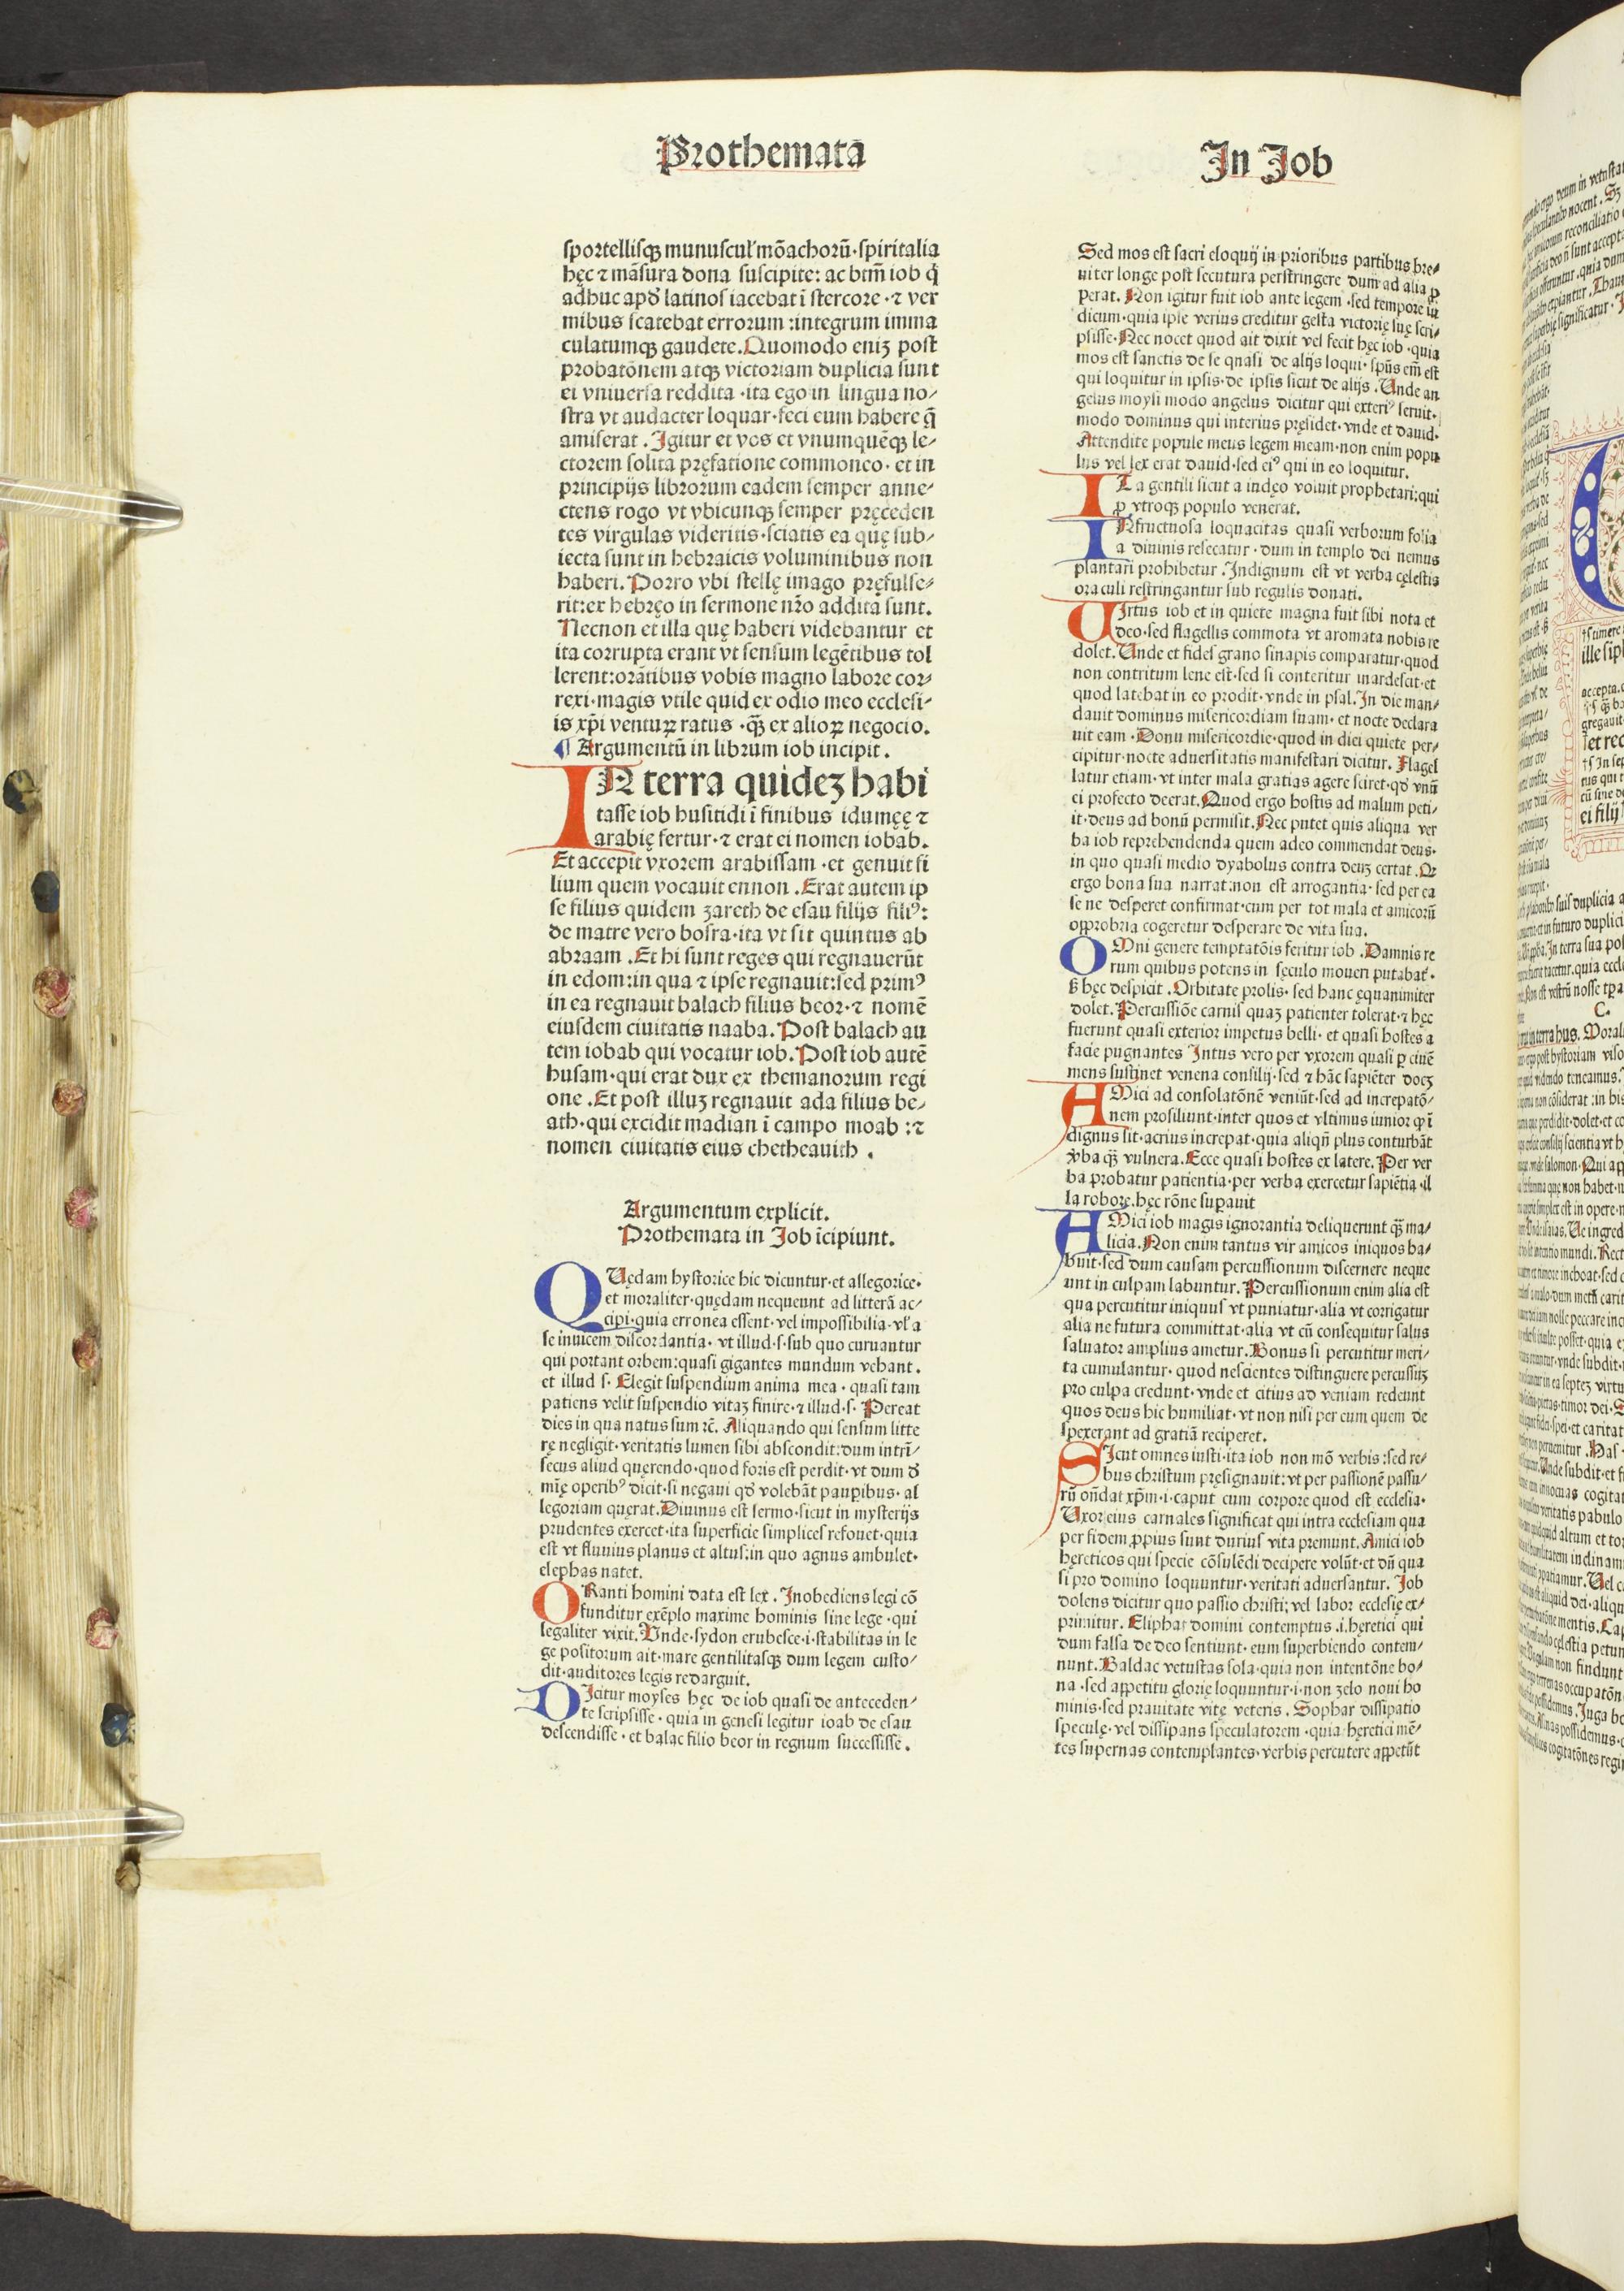 Prothemata
In Job
sportellisq̃ munuscul' mõachorũ·spiritalia
hęc ⁊ mãsura dona suscipite: ac btm̃ iob q̇
adhuc apđ latinos iacebat ĩ stercore·⁊ ver
mibus scatebat errorum:integrum imma
culatumq̃ gaudete.Quomodo eniꝫ post
probatõnem atq̃ victoriam duplicia sunt
ei vniuersa reddita·ita ego in lingua no/
stra vt audacter loquar·feci eum habere q̃
amiserat. Igitur et vos et vnumquẽq̃ le/
ctorem solita pręfatione commoneo· et in
principijs librorum eadem semper anne/
ctens rogo vt vbicunq̃ semper pręceden
tes virgulas videritis·sciatis ea quę sub/
iecta sunt in hebraicis voluminibus non
haberi. Porro vbi stellę imago pręfulse/
rit:ex hebręo in sermone nr̃o addita sunt.
Necnon et illa quę haberi videbantur et
ita corrupta erant vt sensum legẽtibus tol
lerent:orãtibus vobis magno labore cor/
rexi·magis vtile quid ex odio meo ecclesi/
is xp̃i venturꝝ ratus·q̃ꝫ ex alioꝝ negocio.
¶ Argumentũ in librum iob incipit.
IN terra quideꝫ habi
tasse iob husitidi ĩ finibus idumęę ⁊
arabię fertur·⁊ erat ei nomen iobab.
Et accepit vxorem arabissam·et genuit fi
lium quem vocauit ennon. Erat autem ip
se filius quidem zareth de esau filijs filiꝰ:
de matre vero bosra·ita vt sit quintus ab
abraam. Et hi sunt reges qui regnauerũt
in edom:in qua ⁊ ipse regnauit:sed primꝰ
in ea regnauit balach filius beor·⁊ nomẽ
eiusdem ciuitatis naaba. Post balach au
tem iobab qui vocatur iob. Post iob autẽ
husam·qui erat dux ex themanorum regi
one. Et post illuꝫ regnauit ada filius be/
ath·qui excidit madian ĩ campo moab:⁊
nomen ciuitatis eius chetheauith.
Argumentum explicit.
Prothemata in Job ĩcipiunt.
QUędam hystorice hic dicuntur·et allegorice·
et moraliter·quędam nequeunt ad litterã ac/
cipi·quia erronea essent·vel impossibilia·vl' a
se inuicem discordantia· vt illud·s·sub quo curuantur
qui portant orbem:quasi gigantes mundum vehant.
et illud s· Elegit suspendium anima mea· quasi tam
patiens velit suspendio vitaꝫ finire·⁊ illud·s· Pereat
dies in qua natus sum ⁊c̃. Aliquando qui sensum litte
rę negligit·veritatis lumen sibi abscondit:dum intrĩ/
secus aliud quęrendo·quod foris est perdit·vt dum đ
mię operibꝰ dicit·si negaui qđ volebãt pauꝑibus· al
legoriam quęrat.Diuinus est sermo·sicut in mysterijs
prudentes exercet·ita superficie simplices refouet·quia
est vt fluuius planus et altus:in quo agnus ambulet·
elephas natet.
ORanti homini data est lex. Inobediens legi cõ
funditur exẽplo maxime hominis sine lege·qui
legaliter vixit. Vnde·sydon erubesce·i·stabilitas in le
ge positorum ait·mare gentilitasq̃ dum legem custo/
dit·auditores legis redarguit.
DIcitur moyses hęc de iob quasi de anteceden/
te scripsisse· quia in genesi legitur ioab de esau
descendisse· et balac filio beor in regnum successisse.
Sed mos est sacri eloquij in prioribus partibus bre/
uiter longe post secutura perstringere dum ad alia ꝓ
perat. Non igitur fuit iob ante legem·sed tempore iu
dicum·quia ipse verius creditur gesta victorię suę scri/
psisse·Nec nocet quod ait dixit vel fecit hęc iob·quia
mos est sanctis de se quasi de alijs loqui·spũs em̃ est
qui loquitur in ipsis·de ipsis sicut de alijs. Unde an
gelus moysi modo angelus dicitur qui exteriꝰ seruit·
modo dominus qui interius pręsidet·vnde et dauid·
Attendite popule meus legem meam·non enim popu
lus vel lex erat dauid·sed eiꝰ qui in eo loquitur.
ITa gentili sicut a indęo voluit prophetari:qui
ꝓ vtroq̃ populo venerat.
INfructuosa loquacitas quasi verborum folia
a diuinis resecatur· dum in templo dei nemus
plantari prohibetur. Indignum est vt verba cęlestis
oraculi restringantur sub regulis donati.
UIrtus iob et in quiete magna fuit sibi nota et
deo·sed flagellis commota vt aromata nobis re
dolet. Unde et fides grano sinapis comparatur·quod
non contritum lene est·sed si conteritur inardescit·et
quod latebat in eo prodit·vnde in psal. In die man/
dauit dominus misericordiam suam· et nocte declara
uit eam·Donũ misericordie·quod in diei quiete per/
cipitur·nocte aduersitatis manifestari dicitur. Flagel
latur etiam·vt inter mala gratias agere sciret·qđ vnũ
ei profecto deerat. Quod ergo hostis ad malum peti/
it·deus ad bonũ permisit. Nec putet quis aliqua ver
ba iob reprehendenda quem adeo commendat deus·
in quo quasi medio dyabolus contra deuꝫ certat. Q
ergo bona sua narrat:non est arrogantia·sed per ea
se ne desperet confirmat·cum per tot mala et amicorũ
opprobria cogeretur desperare de vita sua.
OMni genere temptatõis feritur iob. Damnis re
rum quibus potens in sęculo moueri putabat·
ß hęc despicit. Orbitate prolis· sed hanc ęquanimiter
dolet. Percussiõe carnis quaꝫ patienter tolerat·⁊ hęc
fuerunt quasi exterior impetus belli·et quasi hostes a
facie pugnantes Intus vero per vxorem quasi ꝑ ciuẽ
mens sustinet venena consilij·sed ⁊ hãc sapiẽter doceꝫ
AMici ad consolatõnẽ veniũt·sed ad increpatõ/
nem prosiliunt·inter quos et vltimus iunior qͥ ĩ
dignus sit·acrius increpat·quia aliqñ plus conturbãt
v̾ba q̃ꝫ vulnera. Ecce quasi hostes ex latere. Per ver
ba probatur patientia·per verba exercetur sapiẽtia·il
la robore.hęc rõne supauit
AMici iob magis ignorantia deliquerunt q̃ꝫ ma/
licia. Non enim tantus vir amicos iniquos ha/
buit·sed dum causam percussionum discernere neque
unt in culpam labuntur. Percussionum enim alia est
qua percutitur iniquus vt puniatur·alia vt corrigatur
alia ne futura committat·alia vt cũ consequitur salus
saluator amplius ametur. Bonus si percutitur meri/
ta cumulantur· quod nescientes distinguere percussuꝫ
pro culpa credunt·vnde et citius ad veniam redeunt
quos deus hic humiliat·vt non nisi per eum quem de
spexerant ad gratiã reciperet.
SIcut omnes iusti·ita iob non mõ verbis:sed re/
bus christum pręsignauit:vt per passionẽ passu/
rũ oñdat xp̃m·i·caput cum corpore quod est ecclesia·
Uxor eius carnales significat qui intra ecclesiam qua
per fidem ꝓpius sunt durius vita premunt. Amici iob
hęreticos qui specie cõsulẽdi decipere volũt·et dũ qua
si pro domino loquuntur·veritati aduersantur. Job
dolens dicitur quo passio christi; vel labor ecclesię ex/
primitur. Eliphaz domini contemptus·i.hęretici qui
dum falsa de deo sentiunt· eum superbiendo contem/
nunt. Baldac vetustas sola·quia non intentõne bo/
na·sed appetitu glorię loquuntur·i·non zelo noui ho
minis·sed prauitate vitę veteris. Sophar dissipatio
speculę·vel dissipans speculatorem·quia hęretici mẽ/
tes supernas contemplantes·verbis percutere appetũt